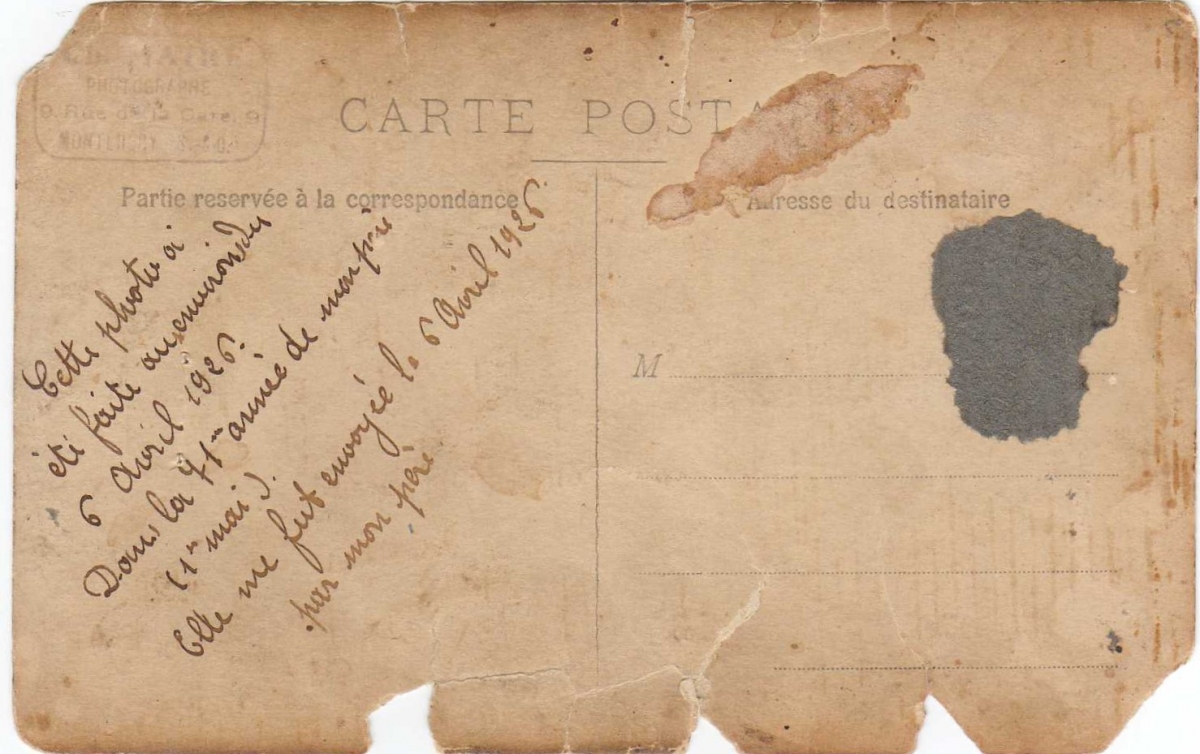 PHOTOGRAPHE
9, Rue de la Gare, 9
MONTLHERY S.-&-O.
CARTE POSTA
Partie reservée à la correspondance
Adresse du destinataire
Cette photo a
été faite aux environs du
6 Avril 1926.
Dans la 71me année de mon père
(1er mai).
Elle me fut envoyée le 6 Avril 1926
par mon père
M